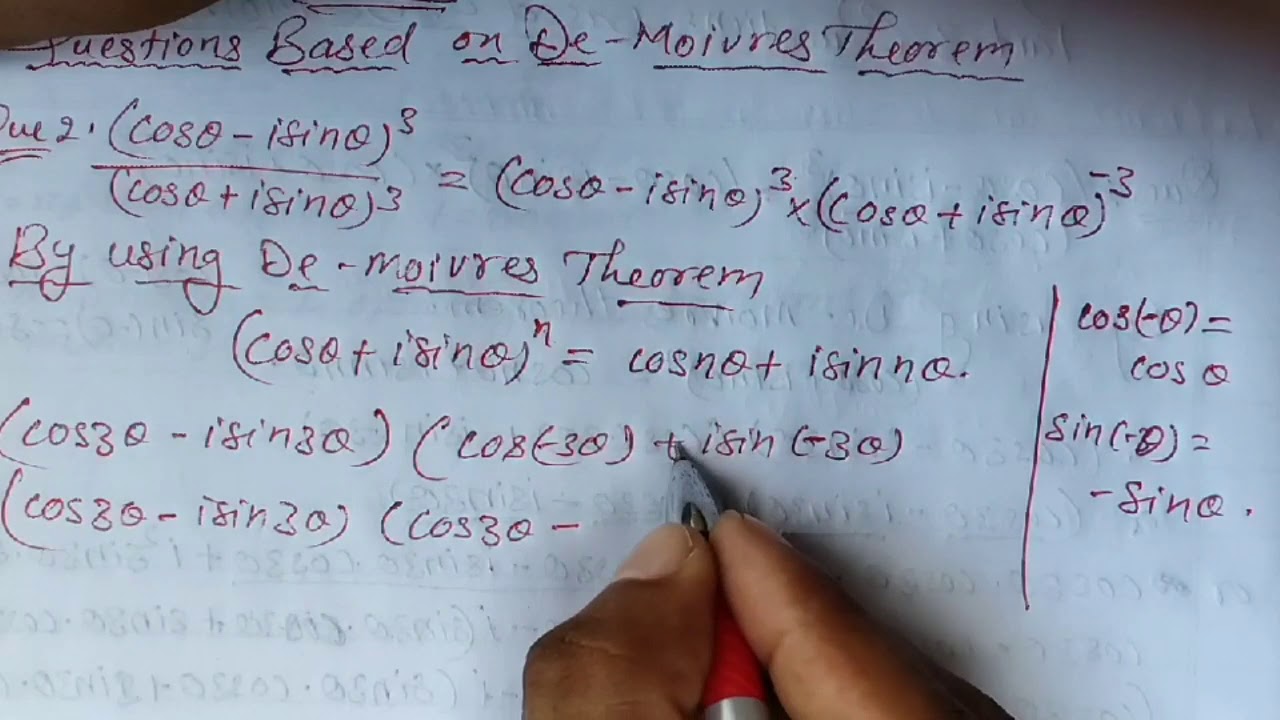 Questions Based on De-Moivres Theorem
Que 2. (cosθ - isinθ)³
(cosθ + isinθ)³ = (cosθ - isinθ)³ × (cosθ + isinθ)⁻³
By using De-moivres Theorem
(cosθ + isinθ)ⁿ = cosnθ + isin nθ.
(cos3θ - isin3θ) (cos(-3θ) + isin(-3θ)
(cos3θ - isin3θ) (cos3θ -
cos(-θ) =
cosθ
sin(-θ) =
-sinθ.